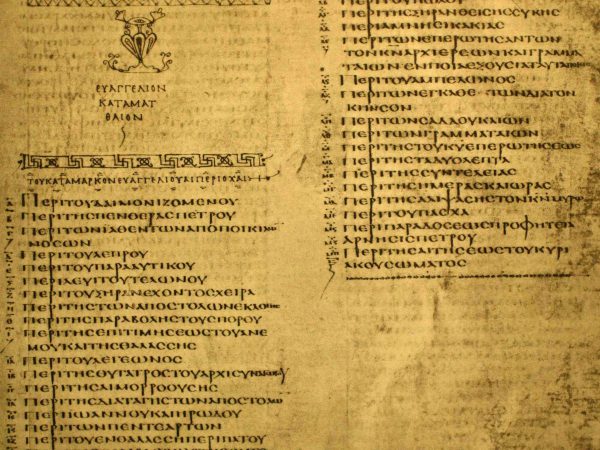 ΕΥΑΓΓΕΛΙΟΝ
ΚΑΤΑΜΑΤ
ΘΑΙΟΝ
ΤΟΥΚΑΤΑΜΑΡΚΟΝΕΥΑΓΓΕΛΙΟΥΑΙΠΕΡΙΟΧΑΙ
ΠΕΡΙΤΟΥΔΑΙΜΟΝΙΖΟΜΕΝΟΥ
ΠΕΡΙΤΗϹΠΕΝΘΕΡΑϹΠΕΤΡΟΥ
ΠΕΡΙΤΩΝΙΑΘΕΝΤΩΝΑΠΟΠΟΙΚΙ
ΝΟϹΩΝ
ΠΕΡΙΤΟΥΛΕΠΡΟΥ
ΠΕΡΙΤΟΥΠΑΡΑΛΥΤΙΚΟΥ
ΠΕΡΙΛΕΥΙΤΟΥΤΕΛΩΝΟΥ
ΠΕΡΙΤΟΥΞΗΡΑΝΕΧΟΝΤΟϹΧΕΙΡΑ
ΠΕΡΙΤΗϹΤΩΝΑΠΟϹΤΟΛΩΝΕΚΛΟΓΗϹ
ΠΕΡΙΤΗϹΠΑΡΑΒΟΛΗϹΤΟΥϹΠΟΡΟΥ
ΠΕΡΙΤΗϹΕΠΙΤΙΜΗϹΕΩϹΤΟΥΑΝΕ
ΜΟΥΚΑΙΤΗϹΘΑΛΑϹϹΗϹ
ΠΕΡΙΤΟΥΛΕΓΕΩΝΟϹ
ΠΕΡΙΤΗϹΘΥΓΑΤΡΟϹΤΟΥΑΡΧΙϹΥΝΑΓΩΓΟΥ
ΠΕΡΙΤΗϹΑΙΜΟΡΡΟΟΥϹΗϹ
ΠΕΡΙΤΗϹΔΙΑΤΑΓΗϹΤΩΝΑΠΟϹΤΟΛΩΝ
ΠΕΡΙΙΩΑΝΝΟΥΚΑΙΗΡΩΔΟΥ
ΠΕΡΙΤΩΝΠΕΝΤΕΑΡΤΩΝ
ΠΕΡΙΤΟΥΕΝΘΑΛΑϹϹΗΠΕΡΙΠΑΤΟΥ
ΠΕΡΙΤΗϹΞΗΡΑΝΘΕΙϹΗϹϹΥΚΗϹ
ΠΕΡΙΑΜΝΗϹΙΚΑΚΙΑϹ
ΠΕΡΙΤΩΝΕΠΕΡΩΤΗϹΑΝΤΩΝ
ΤΟΝΚΝΑΡΧΙΕΡΕΩΝΚΑΙΓΡΑΜΜΑ
ΤΑΙΩΝΕΝΠΟΙΑΕΞΟΥϹΙΑΤΑΥΤΑΠΟΙΕΙϹ
ΠΕΡΙΤΟΥΑΜΠΕΛΩΝΟϹ
ΠΕΡΙΤΩΝΕΓΚΑΘΕΤΩΝΔΙΑΤΟΝ
ΚΗΝϹΟΝ
ΠΕΡΙΤΩΝϹΑΔΔΟΥΚΑΙΩΝ
ΠΕΡΙΤΩΝΓΡΑΜΜΑΤΑΙΩΝ
ΠΕΡΙΤΗϹΤΟΥΚΥΕΠΕΡΩΤΗϹΕΩϹ
ΠΕΡΙΤΗϹΤΑΔΥΟΛΕΠΤΑ
ΠΕΡΙΤΗϹϹΥΝΤΕΛΕΙΑϹ
ΠΕΡΙΤΗϹΗΜΕΡΑϹΚΑΙΩΡΑϹ
ΠΕΡΙΤΗϹΑΛΙΨΑϹΗϹΤΟΝΚΝΜΥΡΩ
ΠΕΡΙΤΟΥΠΑϹΧΑ
ΠΕΡΙΠΑΡΑΔΟϹΕΩϹΠΡΟΦΗΤΕΙΑ
ΑΡΝΗϹΙϹΠΕΤΡΟΥ
ΠΕΡΙΤΗϹΑΙΤΗϹΕΩϹΤΟΥΚΥΡΙ
ΑΚΟΥϹΩΜΑΤΟϹ